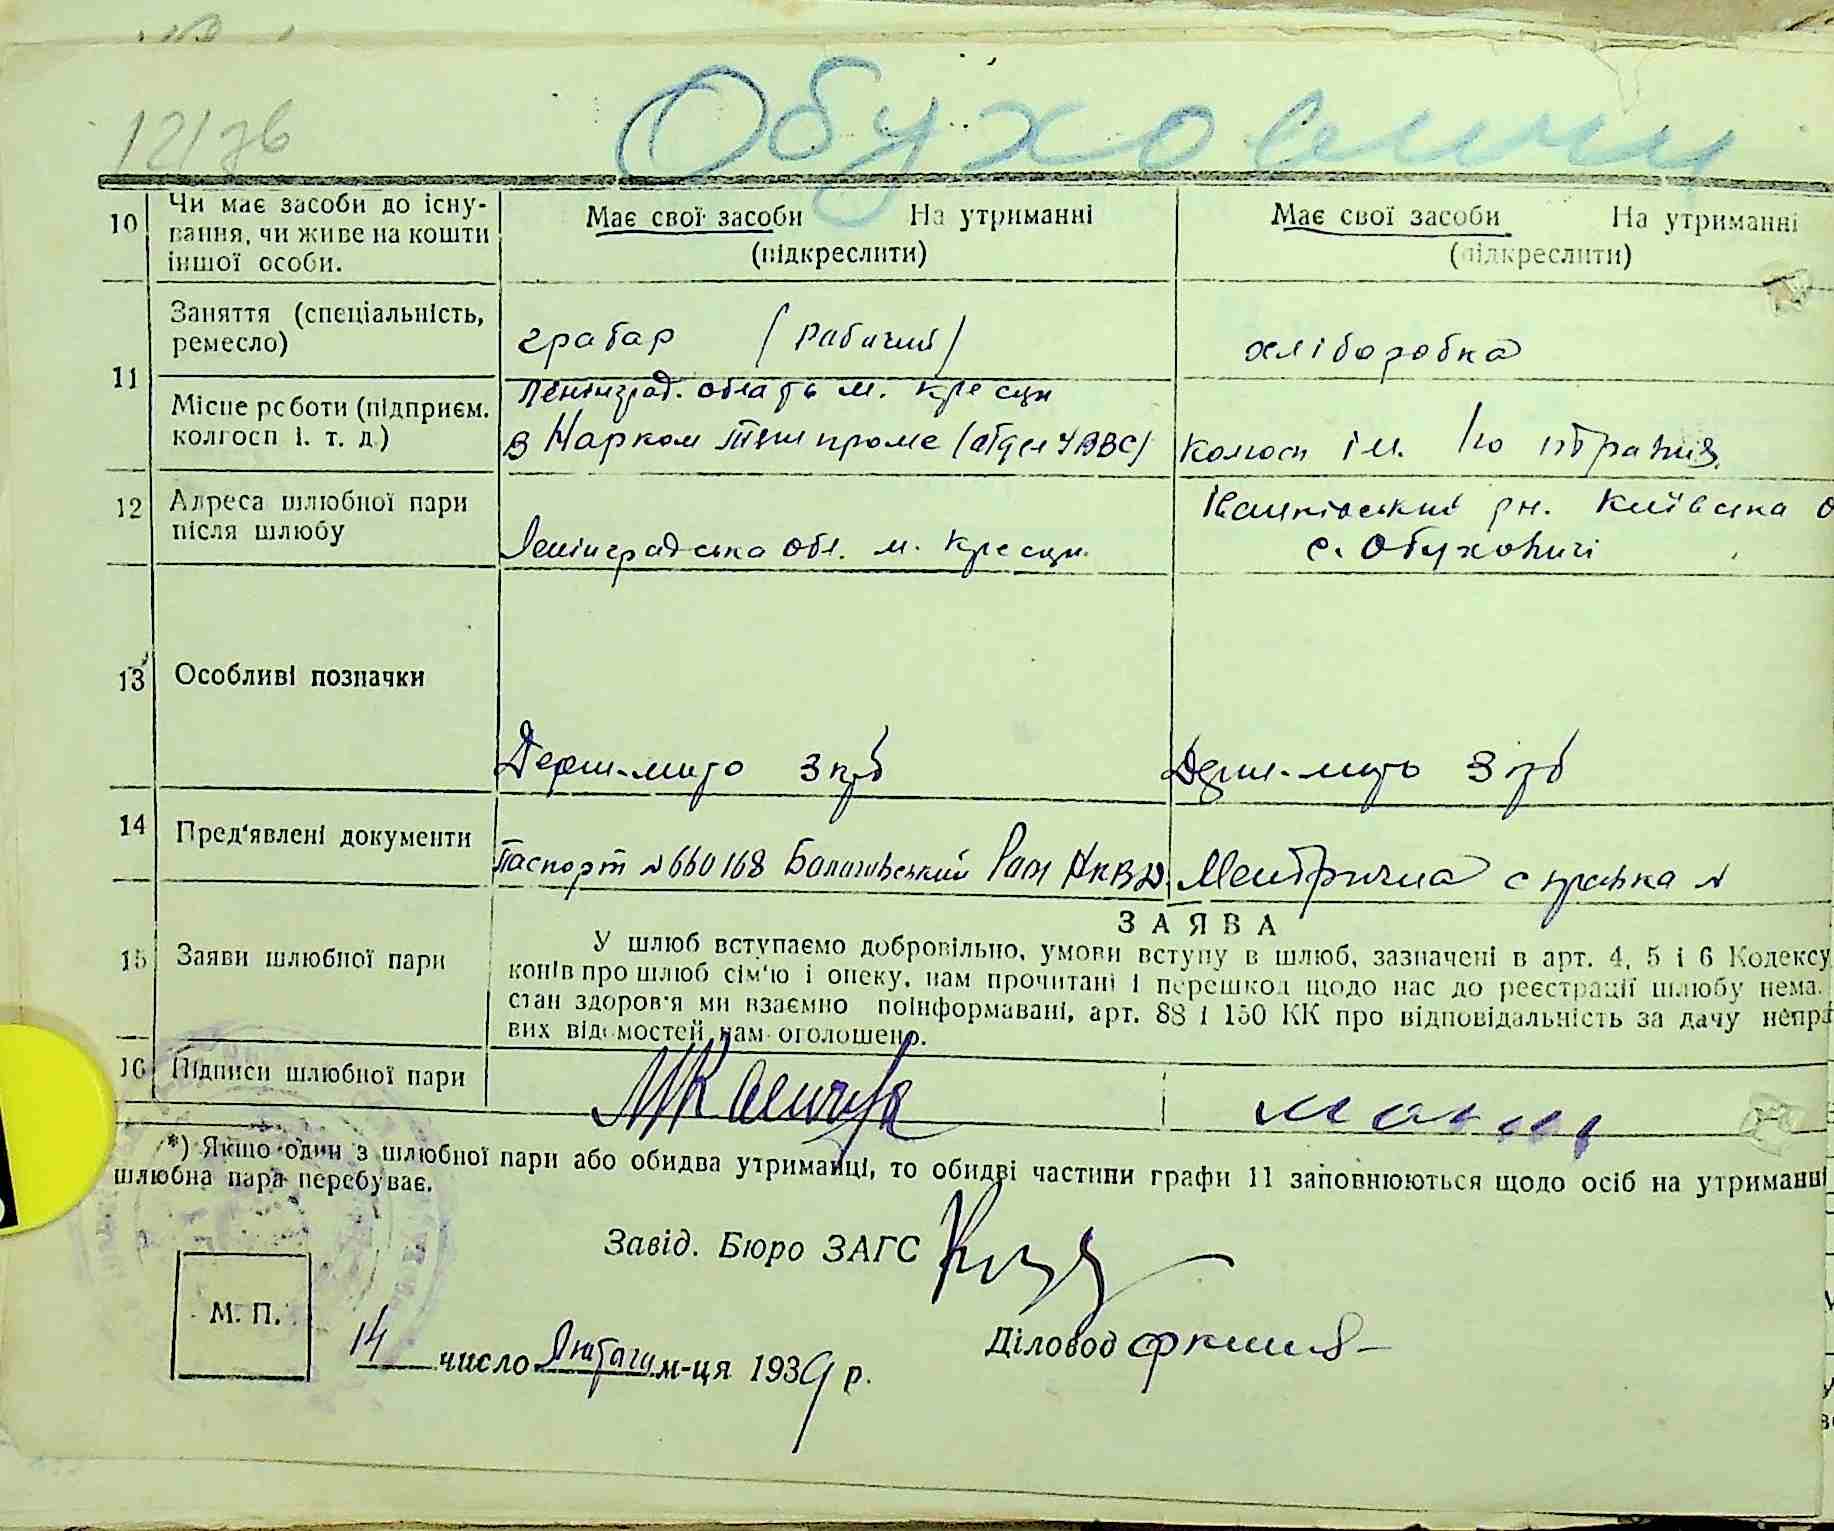 Обуховичи
10 Чи має засоби до існування, чи живе на кошти іншої особи. Має свої засоби На утриманні (підкреслити) Має свої засоби На утриманні (підкреслити)
11 Заняття (спеціальність, ремесло) грабар (рабичий) хліборобка
Місце роботи (підприєм. колгосп і. т. д.) Ленінград. область м. Кресци
в Нарком колгосп ім.
12 Адреса шлюбної пари після шлюбу Ленінградська обл. м. Кресци. Іванківський рн. Київська о
с. Обуховичі
13 Особливі позначки Держ-мито 3 крб Держ-мито 3 крб
14 Пред'явлені документи Паспорт № 660168 НКВД Метрична справка №
ЗАЯВА
15 Заяви шлюбної пари У шлюб вступаємо добровільно, умови вступу в шлюб, зазначені в арт. 4, 5 і 6 Кодексу
конів про шлюб сім'ю і опеку, нам прочитані і перешкод щодо нас до реєстрації шлюбу нема.
стан здоров'я ми взаємно поінформавані, арт. 88 і 150 КК про відповідальність за дачу непра
вих відомостей нам оголошено.
16 Підписи шлюбної пари
*) Якщо один з шлюбної пари або обидва утриманці, то обидві частини графи 11 заповнюються щодо осіб на утриманні
шлюбна пара перебуває.
Завід. Бюро ЗАГС
М. П.
Діловод
14 число Лютого м-ця 1939 р.